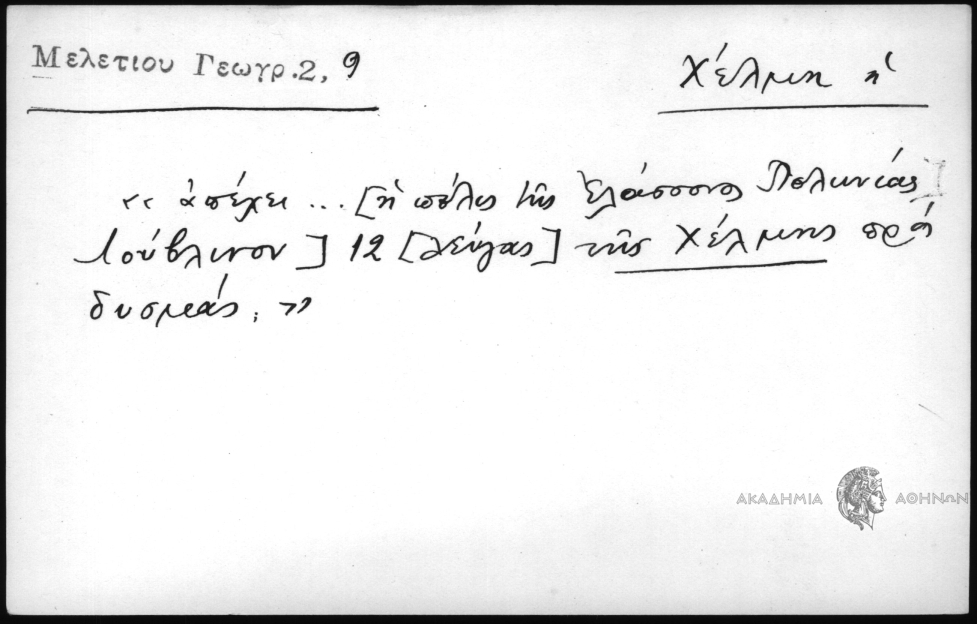 Μελετίου Γεωγρ.2, 9
Χέλμνη ἡ
« ἀπέχει ... [ἡ πόλις τῆς Ἐλάσσονος Πολωνίας
Λούβλινον] 12 [λεύγας] τῆς Χέλμνης πρὸς
δυσμάς. »
ΑΚΑΔΗΜΙΑ ΑΘΗΝΩΝ